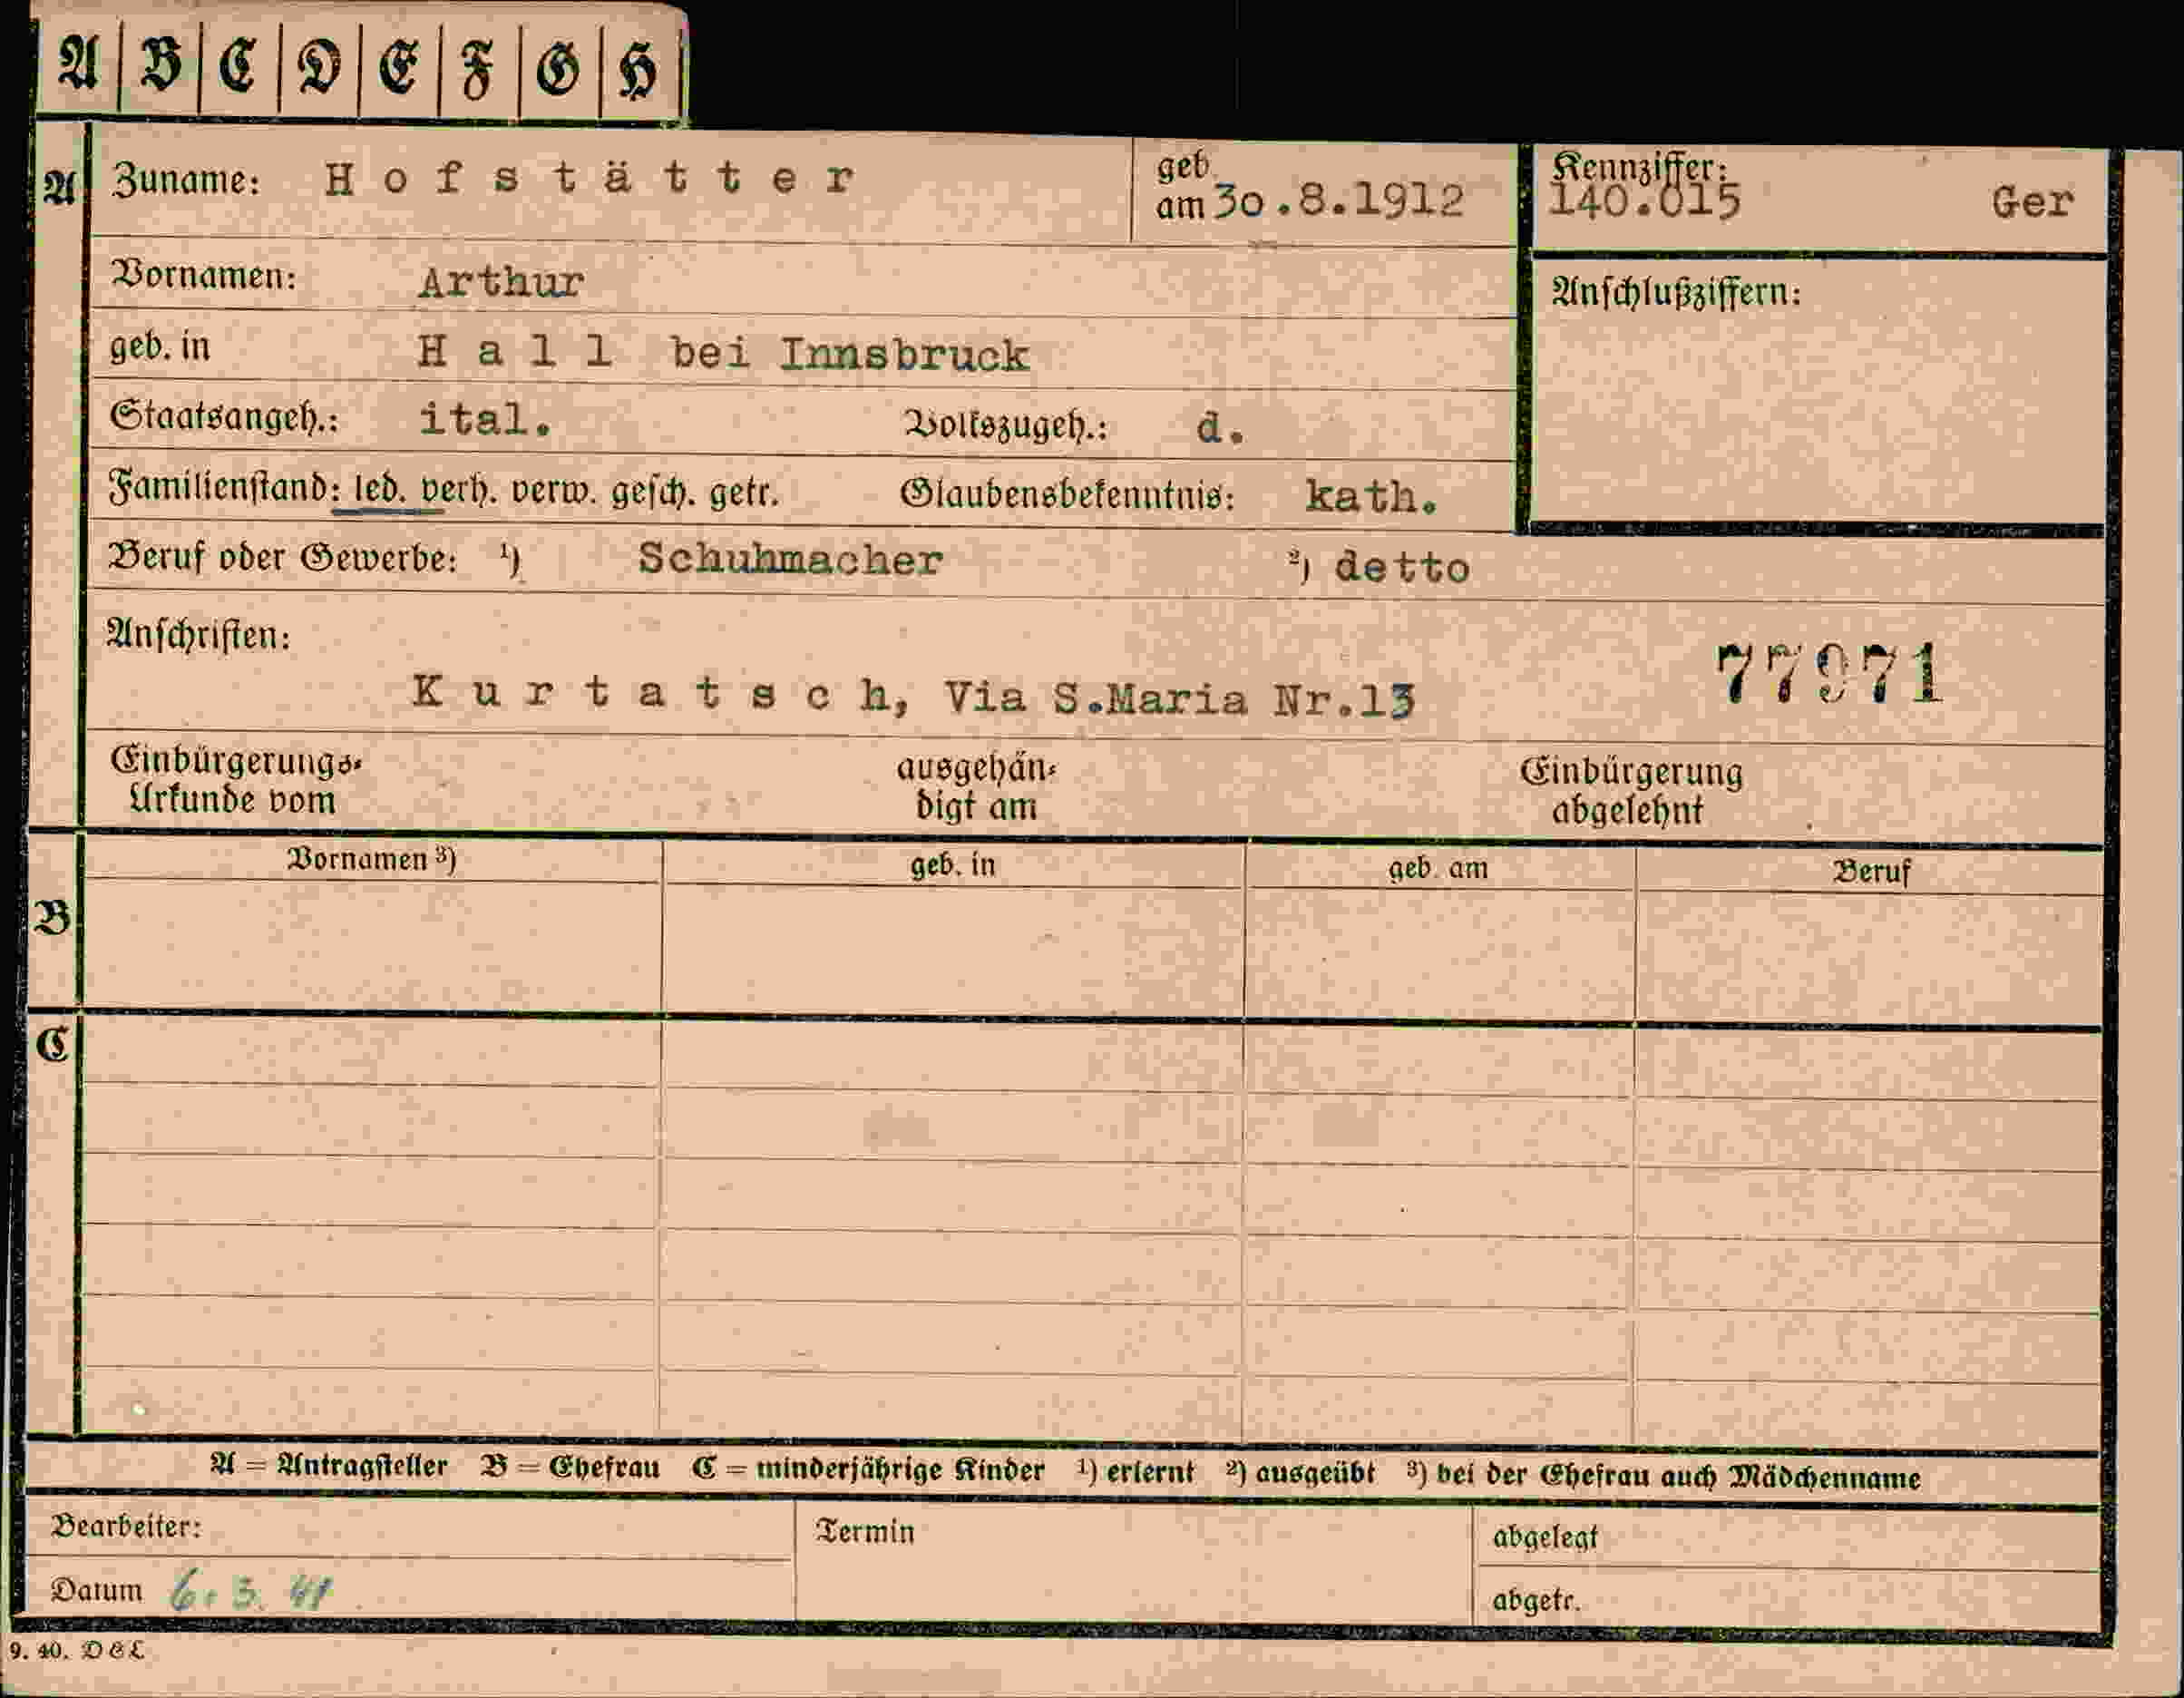 A B C D E F G H
A Zuname: Hofstätter geb. am 30.8.1912 Kennziffer: 140.015 Ger
Vornamen: Arthur Anschlußziffern:
geb. in Hall bei Innsbruck
Staatsangeh.: ital. Volkszugeh.: d.
Familienstand: led. verh. verw. gesch. getr. Glaubensbekenntnis: kath.
Beruf oder Gewerbe: ¹) Schuhmacher ²) detto
Anschriften:
77971
Kurtatsch, Via S.Maria Nr.13
Einbürgerungs- ausgehän- Einbürgerung
Urkunde vom digt am abgelehnt
Vornamen ³) geb. in geb. am Beruf
B
C
A = Antragsteller B = Ehefrau C = minderjährige Kinder ¹) erlernt ²) ausgeübt ³) bei der Ehefrau auch Mädchenname
Bearbeiter: Termin abgelegt
Datum 6. 3. 41 abgetr.
9. 40. D E L